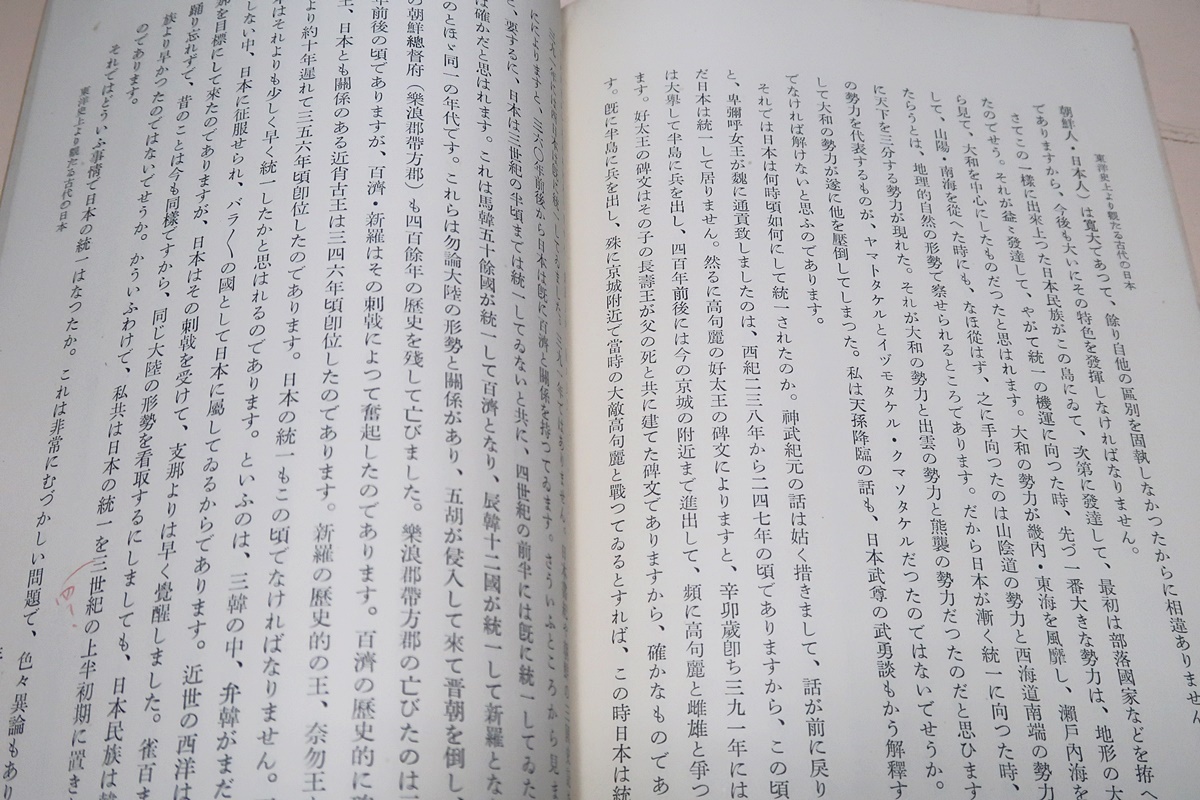 東洋史上より觀たる古代の日本
朝鮮人・日本人）は寬大であつて、餘り自他の區別を固執しなかつたからに相違ありません
でありますから、今後も大いにその特色を發揮しなければなりません。
さてこの一樣に出來上つた日本民族がこの島にゐて、次第に發達して、最初は部落國家などを拵へ
たのでせう。それが益々發達して、やがて統一の機運に向つた時、先づ一番大きな勢力は、地形の大
ら見て、大和を中心にしたものだつたと思はれます。大和の勢力が畿內・東海を風靡し、瀨戶內海を
して、山陽・南海を從へた時にも、なほ從はず、之に手向つたのは山陰道の勢力と西海道南端の勢力
たらうとは、地理的自然の形勢で察せられるところであります。だから日本が漸く統一に向つた時、
に天下を三分する勢力が現れた。それが大和の勢力と出雲の勢力と熊襲の勢力だつたのだと思ひます
の勢力を代表するものが、ヤマトタケルとイヅモタケル・クマソタケルだつたのではないでせうか。
して大和の勢力が遂に他を壓倒してしまつた。私は天孫降臨の話も、日本武尊の武勇談もかう解釋す
でなければ解けないと思ふのであります。
それでは日本は何時頃如何にして統一されたのか。神武紀元の話は姑く措きまして、話が前に戾り
と、卑彌呼女王が魏に通貢致しましたのは、西紀二三八年から二四七年の頃でありますから、この頃
だ日本は統一して居りません。然るに高句麗の好太王の碑文によりますと、辛卯歲卽ち三九一年には
は大擧して半島に兵を出し、四百年前後には今の京城の附近まで進出して、頻に高句麗と雌雄を爭つ
ます。好太王の碑文はその子の長壽王が父の死と共に建てた碑文でありますから、確かなものであ
す。旣に半島に兵を出し、殊に京城附近で當時の大敵高句麗と戰つてゐるとすれば、この時日本は統
にによりますと、三六〇年前後から日本は旣に百濟と關係を持つてゐます。さういふところから見ま
と、要するに、日本は三世紀の半頃までは統一してゐないと共に、四世紀の前半には旣に統一してゐた
は確かだと思はれます。これは馬韓五十餘國が統一して百濟となり、辰韓十二國が統一して新羅とな
のとほゞ同一の年代です。これらは勿論大陸の形勢と關係があり、五胡が侵入して來て晉朝を倒し、
の朝鮮總督府（樂浪郡帶方郡）も四百餘年の歷史を殘して亡びました。樂浪郡帶方郡の亡びたのは三
年前後の頃でありますが、百濟・新羅はその刺戟によつて奮起したのであります。百濟の歷史的に
王、日本とも關係のある近肖古王は三四六年頃卽位したのであります。新羅の歷史的の王、奈勿王
より約十年遲れて三五六年頃卽位したのであります。日本の統一もこの頃でなければなりません。
はそれよりも少し早く統一したかと思はれるのであります。といふのは、三韓の中、弁韓がまだ
しない中、日本に征服せられ、バラ〳〵の國として日本に屬してゐるからであります。近世の西洋は
を目標にして來たのでありますが、日本はその刺戟を受けて、支那よりは早く覺醒しました。雀百ま
踊り忘れずで、昔のことは今も同樣ですから、同じ大陸の形勢を看取するにしましても、日本民族は
族より早かつたのではないでせうか。かういふわけで、私共は日本の統一を三世紀の上半初期に置き
のであります。
それではどういふ事情で日本の統一はなつたか。これは非常にむづかしい問題で、色々異論もあり
東洋史上より觀たる古代の日本
四